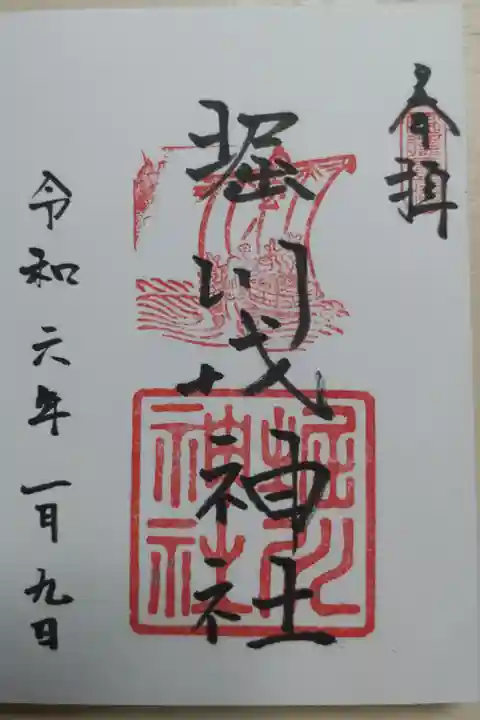 奉拝
堀川戎神社
令和六年一月九日
堀川
神社